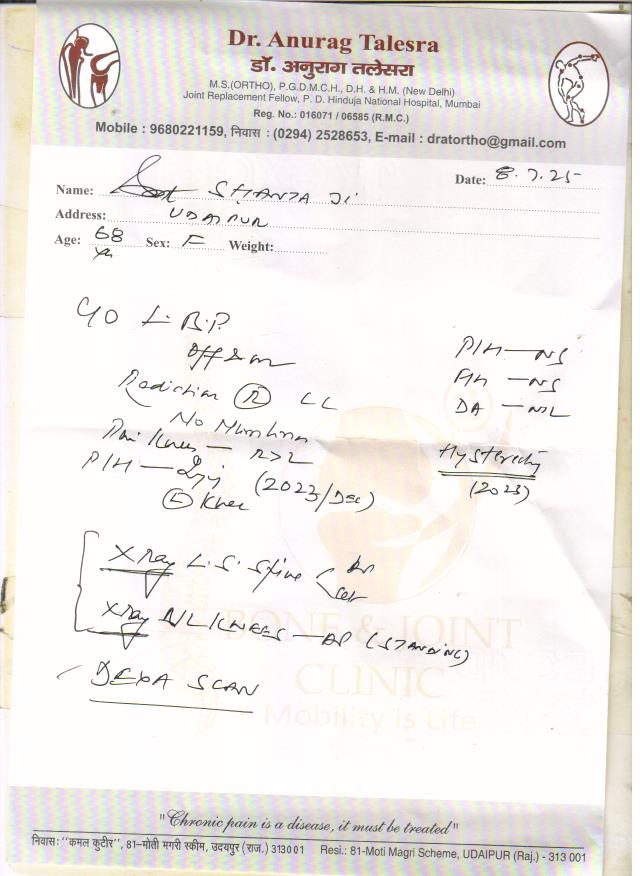 Dr. Anurag Talesra
डॉ. अनुराग तलेसरा
M.S.(ORTHO), P.G.D.M.C.H., D.H. & H.M. (New Delhi)
Joint Replacement Fellow, P. D. Hinduja National Hospital, Mumbai
Reg. No.: 016071 / 06585 (R.M.C.)
Mobile : 9680221159, निवास : (0294) 2528653, E-mail : dratortho@gmail.com
Date: 8.7.25
Name: SHANTA Ji
Address: UDAIPUR
Age: 68 Sex: F Weight:
yr
C/O L.B.P.
Off & on
Radiation (R) LL
No Numbness
Pain Knees — R>L
P/H — Inj (2023/Dec)
(L) Knee
P/H — NS
F/H — NS
DA — NIL
(2023)
X Ray L.S. Spine AP
Lat
X Ray B/L KNEES — AP (STANDING)
DEXA SCAN
BONE & JOINT
CLINIC
Mobility is Life
"Chronic pain is a disease, it must be treated"
निवास: "कमल कुटीर", 81–मोती मगरी स्कीम, उदयपुर (राज.) 313001 Resi.: 81-Moti Magri Scheme, UDAIPUR (Raj.) - 313 001